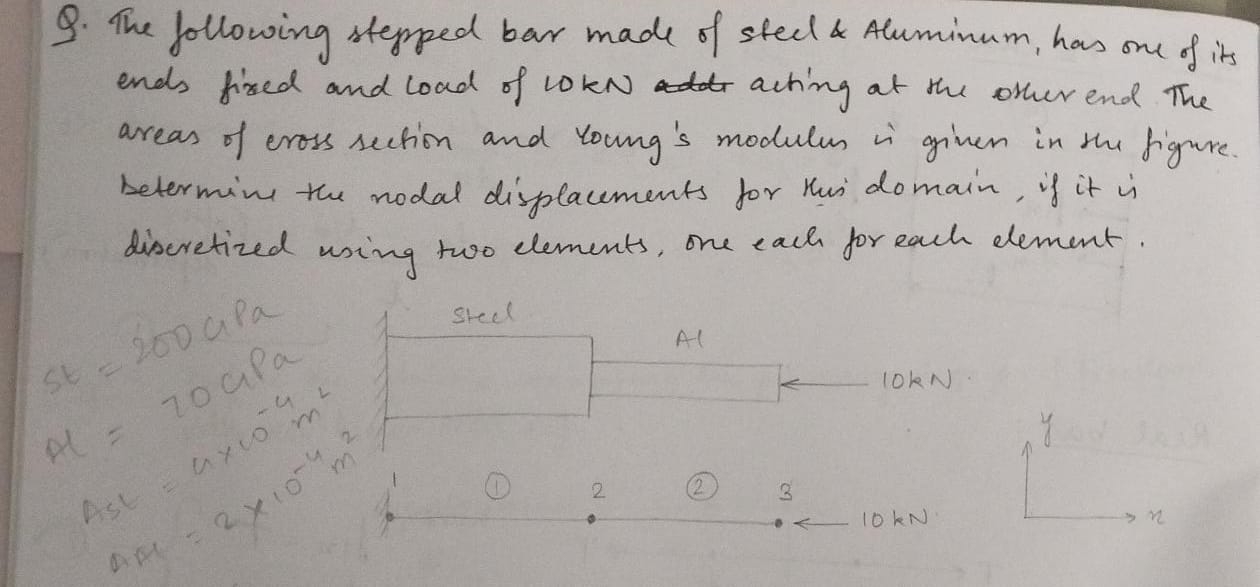 Q. The following stepped bar made of steel & Aluminum, has one of its
ends fixed and load of 10KN acting at the other end The
areas of cross section and Young's modulus is given in the figure.
Determine the nodal displacements for this domain, if it is
discretized using two elements, one each for each element.
St = 200 GPa
Al = 70 GPa
Ast = 4x10⁻⁴ m²
AAl = 2x10⁻⁴ m²
Steel
Al
10KN
y
1 ① 2 ② 3
10KN
x